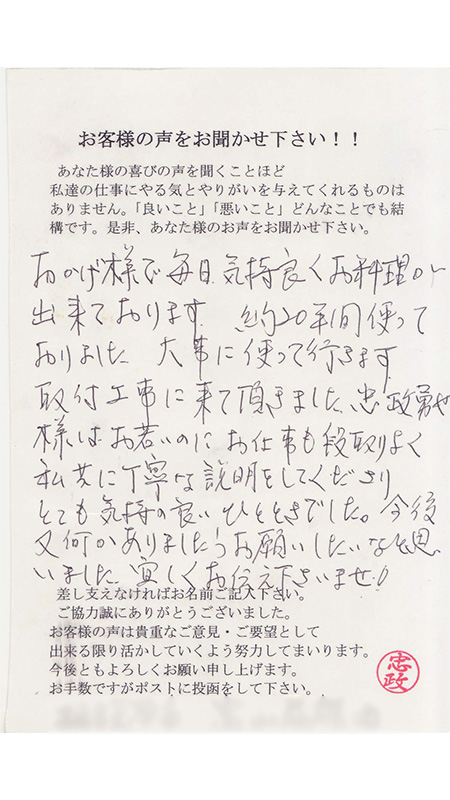 お客様の声をお聞かせ下さい！！
あなた様の喜びの声を聞くことほど
私達の仕事にやる気とやりがいを与えてくれるものは
ありません。「良いこと」「悪いこと」どんなことでも結
構です。是非、あなた様のお声をお聞かせ下さい。
おかげ様で毎日気持良くお料理が
出来ております 約20年間使って
おりました 大事に使って行きます
取付工事に来て頂きました忠政勇也
様はお若いのにお仕事も段取りよく
私共に丁寧な説明をしてくださり
とても気持の良いひとときでした。今後
又何かありましたらお願いしたいなと思
いました 宜しくお伝え下さいませ！
差し支えなければお名前ご記入下さい。
ご協力誠にありがとうございました。
お客様の声は貴重なご意見・ご要望として
出来る限り活かしていくよう努力してまいります。
今後ともよろしくお願い申し上げます。
お手数ですがポストに投函をして下さい。
忠政